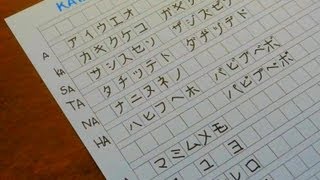 KA
A アイウエオ
KA カキクケコ ガギ
SA サシスセソ ザジズゼゾ
TA タチツテト ダヂヅデド
NA ナニヌネノ
HA ハヒフヘホ バビブベボ パピプペポ
マミムメモ
ユ ヨ
レロ